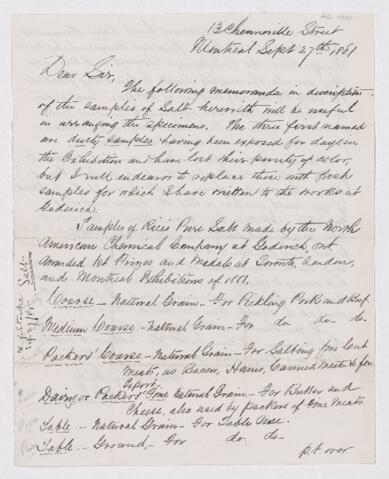 13 Chenneville Street
Montreal Sept 27th 1881
Dear Sir,
The following memoranda in description
of the samples of Salt herewith will be useful
in arranging the specimens. The three first named
are dusty samples having been exposed for days in
the Exhibition and have lost their purity of color,
but I will endeavor to replace these with fresh
samples for which I have written to the works at
Goderich.
Samples of Rice's Pure Salt made by the North
American Chemical Company at Goderich, Ont
Awarded 1st Prizes and Medals at Toronto, London,
and Montreal Exhibitions of 1881.
Coarse - Natural Grain - For Pickling Pork and Beef
Medium Coarse - Natural Grain - For do do do
Packers' Coarse - Natural Grain - For Salting fine cut
Meats, as Bacon, Hams, Canned Meats &c for
Export.
Dairy or Packers' Fine Natural Grain - For Butter and
Cheese, also used by packers of fine Meats
Table - Natural Grain - For Table Use.
Table - Ground, - For do do
p.t. over
Salt